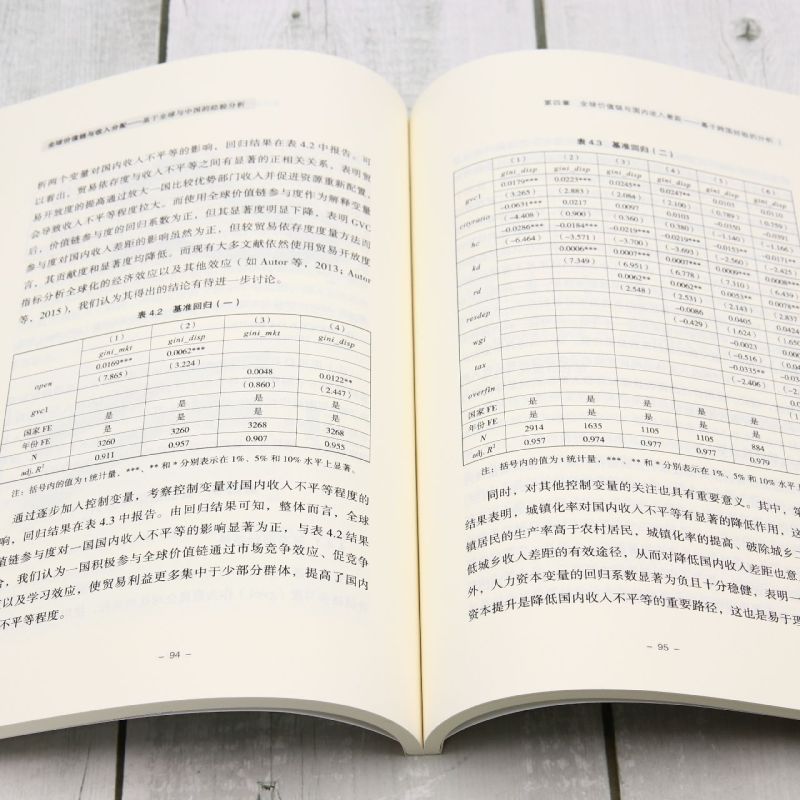 全球价值链与收入分配——基于全球与中国的经验分析
析两个变量对国内收入不平等的影响，回归结果在表4.2中报告。可
以看出，贸易依存度与收入不平等之间有显著的正相关关系，表明贸
易开放度的提高通过放大一国比较优势部门收入并促进资源重新配置，
会导致收入不平等程度拉大。而使用全球价值链参与度作为解释变量
后，价值链参与度的回归系数为正，但其显著度明显下降，表明GVC
参与度对国内收入差距的影响虽然为正，但较贸易依存度度量方法而
言，其贡献度和显著度均降低。而现有大多文献依然使用贸易开放度
指标分析全球化的经济效应以及其他效应（如Autor等，2013；Autor
等，2015），我们认为其得出的结论有待进一步讨论。
表4.2 基准回归（一）
（1） （2） （3） （4）
gini_mkt gini_disp gini_mkt gini_disp
open 0.0169*** 0.0062***
（7.865） （3.224）
gvc1 0.0048 0.0122**
（0.860） （2.447）
国家FE 是 是 是 是
年份FE 是 是 是 是
N 3260 3260 3268 3268
adj. R² 0.911 0.957 0.907 0.955
注：括号内的值为t统计量，***、**和*分别表示在1%、5%和10%水平上显著。
通过逐步加入控制变量，考察控制变量对国内收入不平等程度的
响，回归结果在表4.3中报告。由回归结果可知，整体而言，全球
值链参与度对一国国内收入不平等的影响显著为正，与表4.2结果
合，我们认为一国积极参与全球价值链通过市场竞争效应、促竞争
以及学习效应，使贸易利益更多集中于少部分群体，提高了国内
不平等程度。
- 94 -
第四章 全球价值链与国内收入差距——基于跨国经验的分析
表4.3 基准回归（二）
（1） （2） （3） （4） （5） （6）
gini_disp gini_disp gini_disp gini_disp gini_disp gini_disp
gvc1 0.0179*** 0.0223*** 0.0245** 0.0247** 0.0101 0.0110
（3.265） （2.883） （2.084） （2.100） （0.789） （0.259）
cityratio -0.0631*** 0.0217 0.0097 0.0103
（-4.408） （0.900） （0.360） （0.380）
hc -0.0286*** -0.0184*** -0.0219*** -0.0219***
（-6.464） （-3.571） （-3.700） （-3.693） （-2.560） （-2.425）
kd 0.0006*** 0.0007*** 0.0007*** 0.0009*** 0.0008***
（7.349） （6.951） （6.778） （7.310） （6.439）
rd 0.0062** 0.0062** 0.0053**
（2.548） （2.531） （2.143）
resdep -0.0086 0.0405
（-0.429） （1.624）
wgi -0.0023
（-0.516）
tax -0.0335**
（-2.406）
overfin
国家FE 是 是 是 是 是
年份FE 是 是 是 是 是
N 2914 1635 1105 1105 884
adj. R² 0.957 0.974 0.977 0.977 0.979
注：括号内的值为t统计量，***、**和*分别表示在1%、5%和10%水
同时，对其他控制变量的关注也具有重要意义。其中，第
结果表明，城镇化率对国内收入不平等有显著的降低作用，这
镇居民的生产率高于农村居民，城镇化率的提高、破除城乡
低城乡收入差距的有效途径，从而对降低国内收入差距也意
外，人力资本变量的回归系数显著为负且十分稳健，表明一
资本提升是降低国内收入不平等的重要路径，这也是易于理
- 95 -